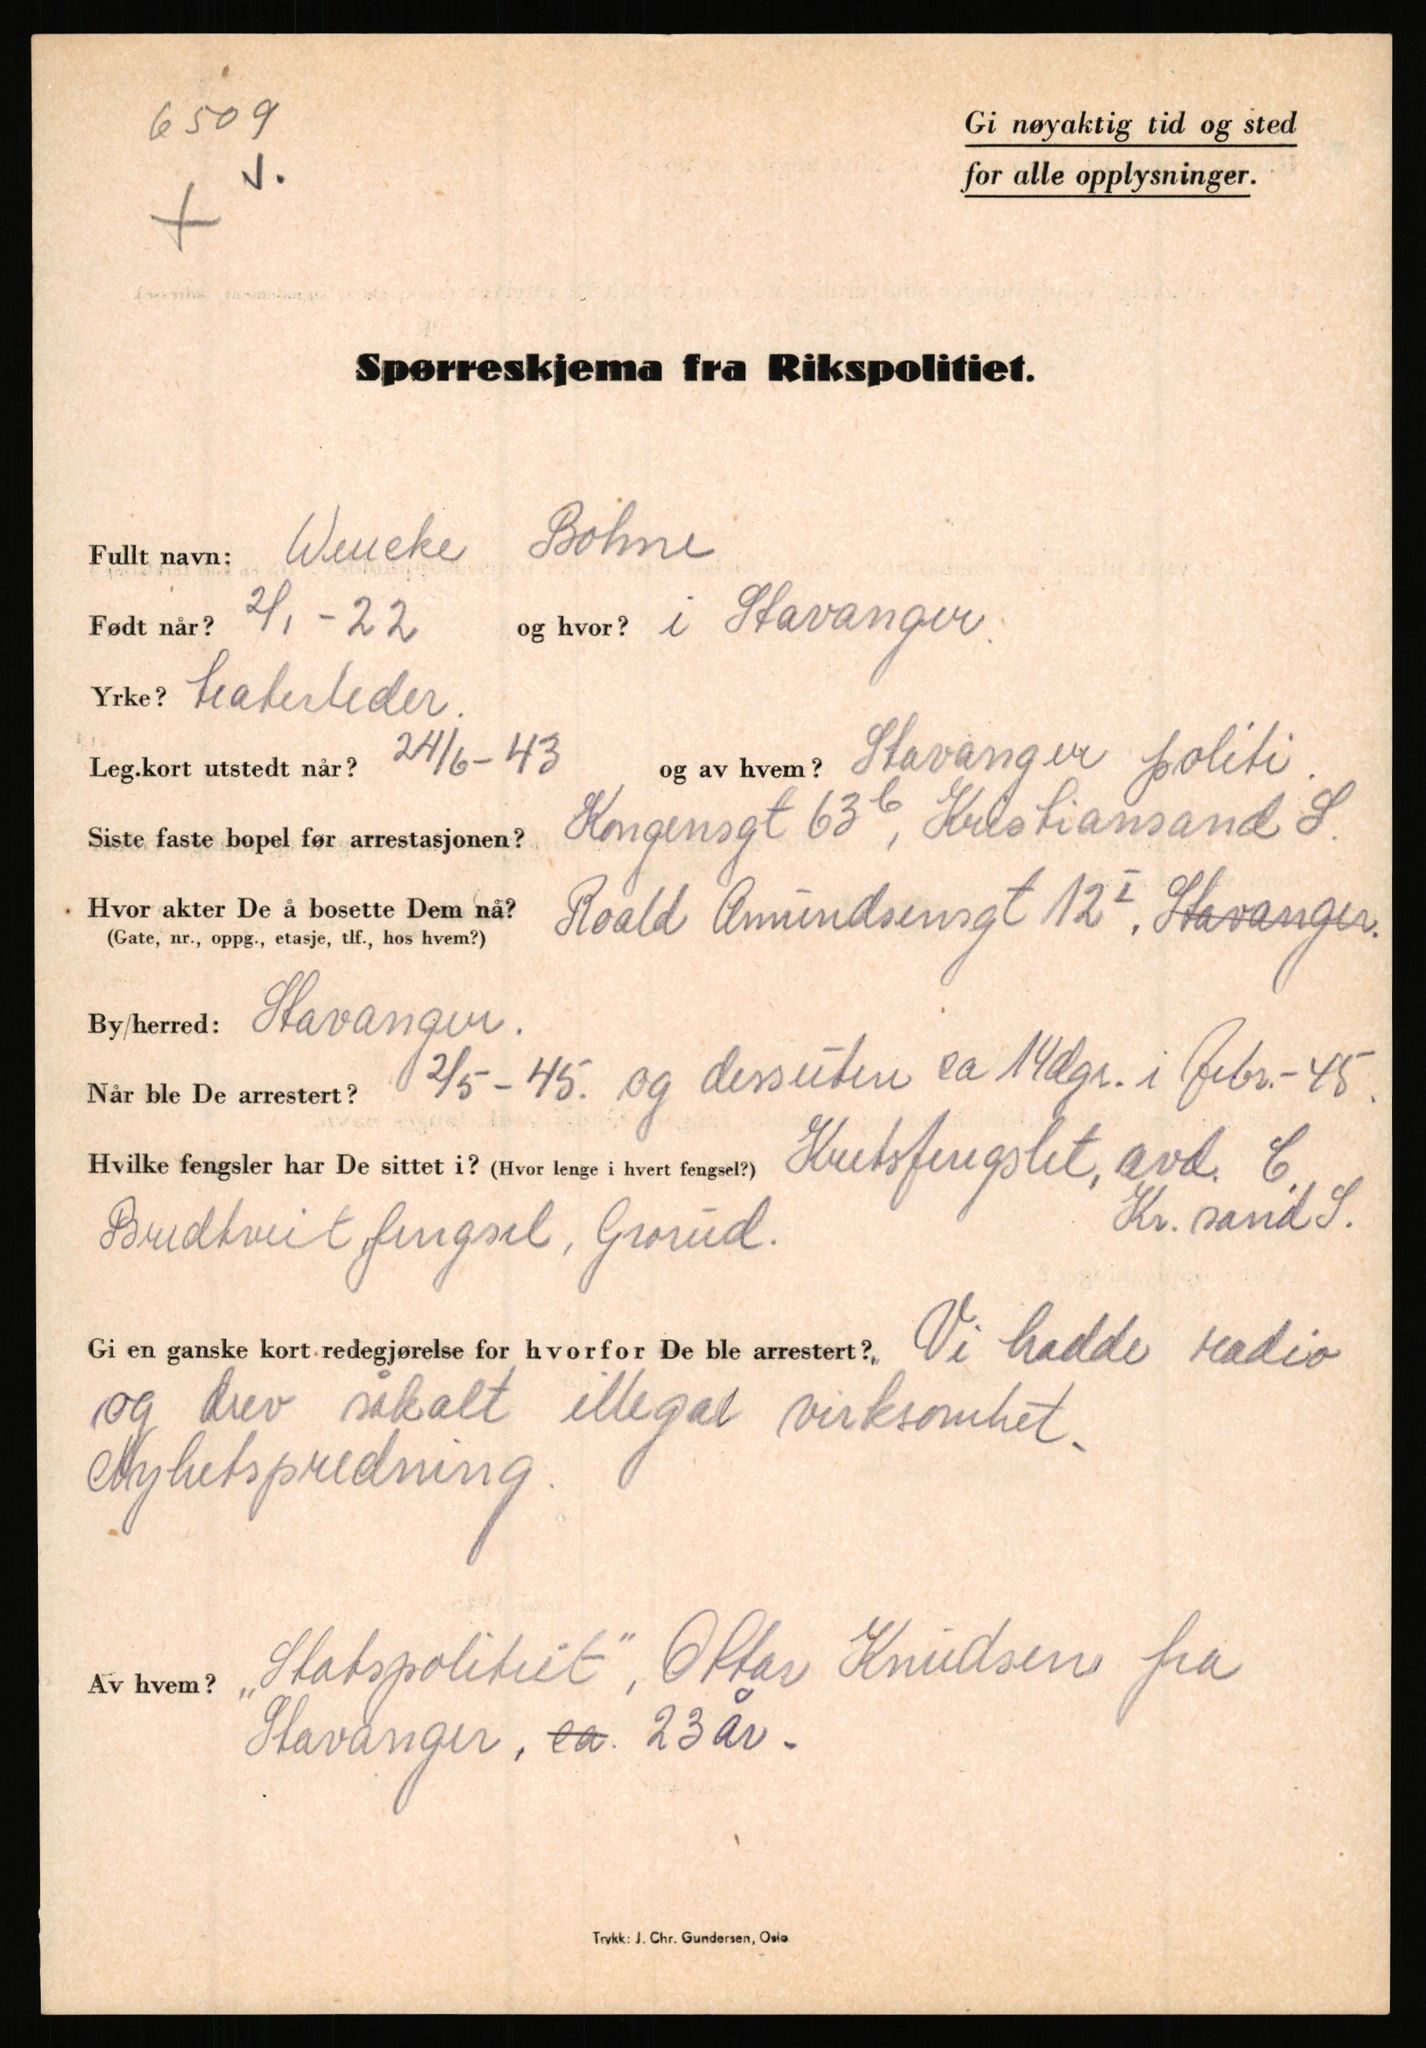 6509
Gi nøyaktig tid og sted
for alle opplysninger.
Spørreskjema fra Rikspolitiet.
Fullt navn: Wencke Bohne
Født når? 2/1-22 og hvor? i Stavanger.
Yrke? teaterleder.
Leg.kort utstedt når? 24/6-43 og av hvem? Stavanger politi.
Siste faste bopel før arrestasjonen? Kongensgt 63b, Kristiansand S.
Hvor akter De å bosette Dem nå? Roald Amundsensgt 12 I, Stavanger.
(Gate, nr., oppg., etasje, tlf., hos hvem?)
By/herred: Stavanger.
Når ble De arrestert? 2/5-45. og dessuten ca 14dgr. i febr.-45.
Hvilke fengsler har De sittet i? (Hvor lenge i hvert fengsel?) Kretsfengslet, avd. C,
Kr. sand S.
Bredtveit fengsel, Grorud.
Gi en ganske kort redegjørelse for hvorfor De ble arrestert? Vi hadde radio
og drev såkalt illegal virksomhet.
Nyhetspredning.
Av hvem? „Statspolitiet", Ottar Knudsen fra
Stavanger, ca. 23 år.
Trykk: J. Chr. Gundersen, Oslo